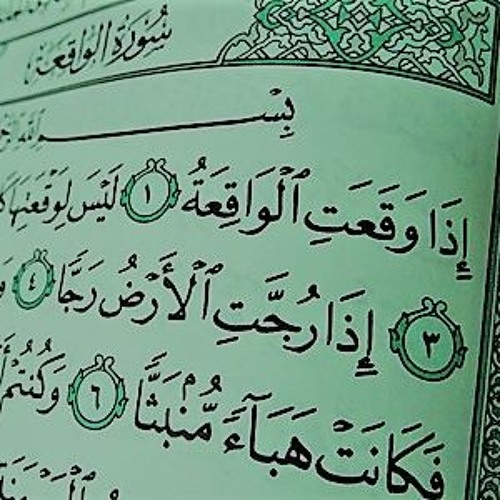 سُورَةُ الوَاقِعَة
بِسْمِ ٱللَّهِ
إِذَا وَقَعَتِ ٱلْوَاقِعَةُ ١ لَيْسَ لِوَقْعَتِهَا
٣ إِذَا رُجَّتِ ٱلْأَرْضُ رَجًّا ٤
فَكَانَتْ هَبَآءً مُّنۢبَثًّا ٦ وَكُنتُمْ